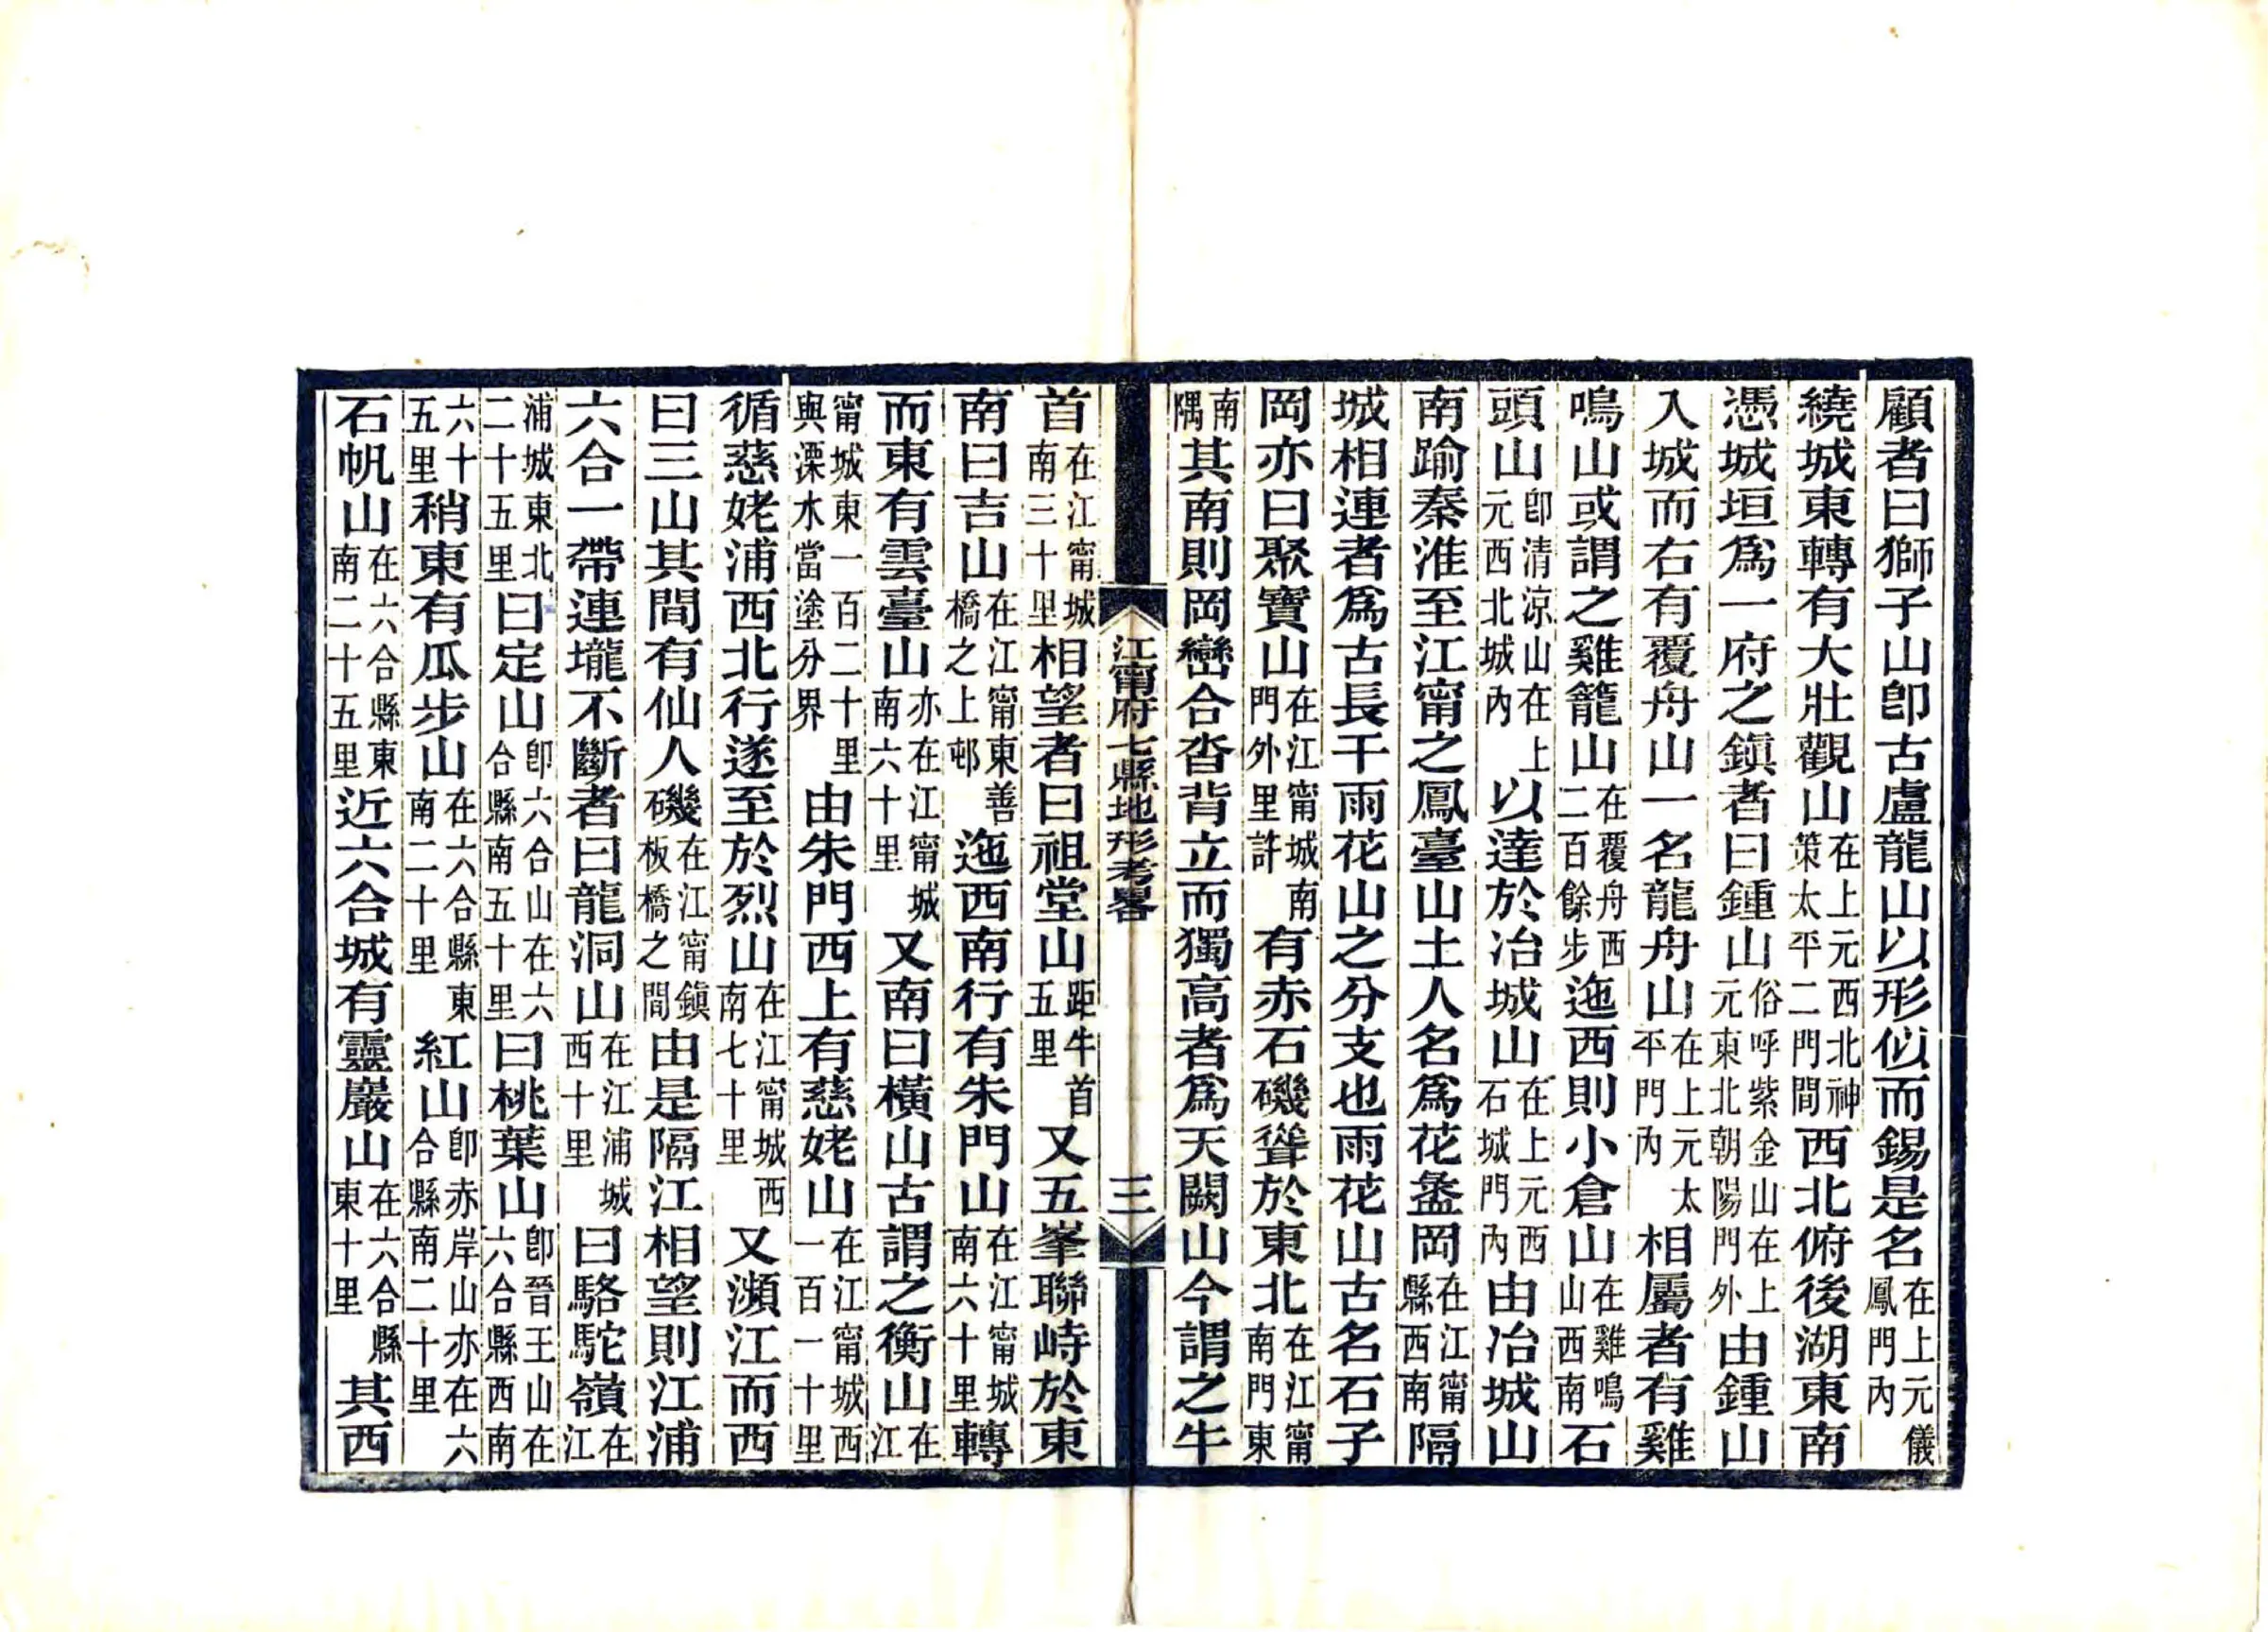 顧者曰獅子山卽古盧龍山以形似而錫是名在上元儀鳳門內
繞城東轉有大壯觀山在上元西北神策太平二門間西北俯後湖東南
憑城垣爲一府之鎭者曰鍾山俗呼紫金山在上元東北朝陽門外由鍾山
入城而右有覆舟山一名龍舟山在上元太平門內相屬者有雞
鳴山或謂之雞籠山在覆舟西二百餘步迤西則小倉山在雞鳴山西南石
頭山卽清涼山在上元西北城內以達於冶城山在上元西石城門內由冶城山
南踰秦淮至江甯之鳳臺山土人名爲花盝岡在江甯縣西南隔
城相連者爲古長干雨花山之分支也雨花山古名石子
岡亦曰聚寶山在江甯城南門外里許有赤石磯聳於東北在江甯南門東
南隅其南則岡巒合沓背立而獨高者爲天闕山今謂之牛
江甯府七縣地形考畧
三
首在江甯城南三十里相望者曰祖堂山距牛首五里又五峯聯峙於東
南曰吉山在江甯東善橋之上邨迤西南行有朱門山在江甯城南六十里轉
而東有雲臺山亦在江甯城南六十里又南曰橫山古謂之衡山在江
甯城東一百二十里與溧水當塗分界由朱門西上有慈姥山在江甯城西一百一十里
循慈姥浦西北行遂至於烈山在江甯城西南七十里又瀕江而西
曰三山其間有仙人磯在江甯鎭板橋之間由是隔江相望則江浦
六合一帶連壠不斷者曰龍洞山在江浦城西十里曰駱駝嶺在江
浦城東北二十五里曰定山卽六合山在六合縣南五十里曰桃葉山卽晉王山在六合縣西南
六十五里稍東有瓜步山在六合縣東南二十里紅山卽赤岸山亦在六合縣南二十里
石帆山在六合縣東南二十五里近六合城有靈巖山在六合縣東十里其西